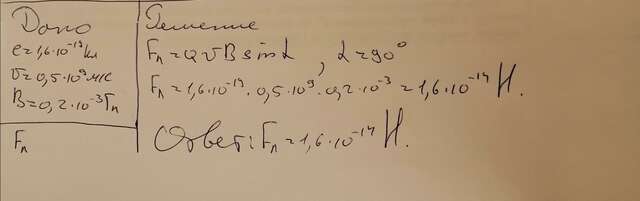 Дано
e=1,6·10⁻¹⁹кл
v=0,5·10⁹м/с
B=0,2·10⁻³Тл
Fл
Решение
Fл=QvBsinL, L=90°
Fл=1,6·10⁻¹⁹·0,5·10⁹·0,2·10⁻³=1,6·10⁻¹⁴Н.
Ответ: Fл=1,6·10⁻¹⁴Н.